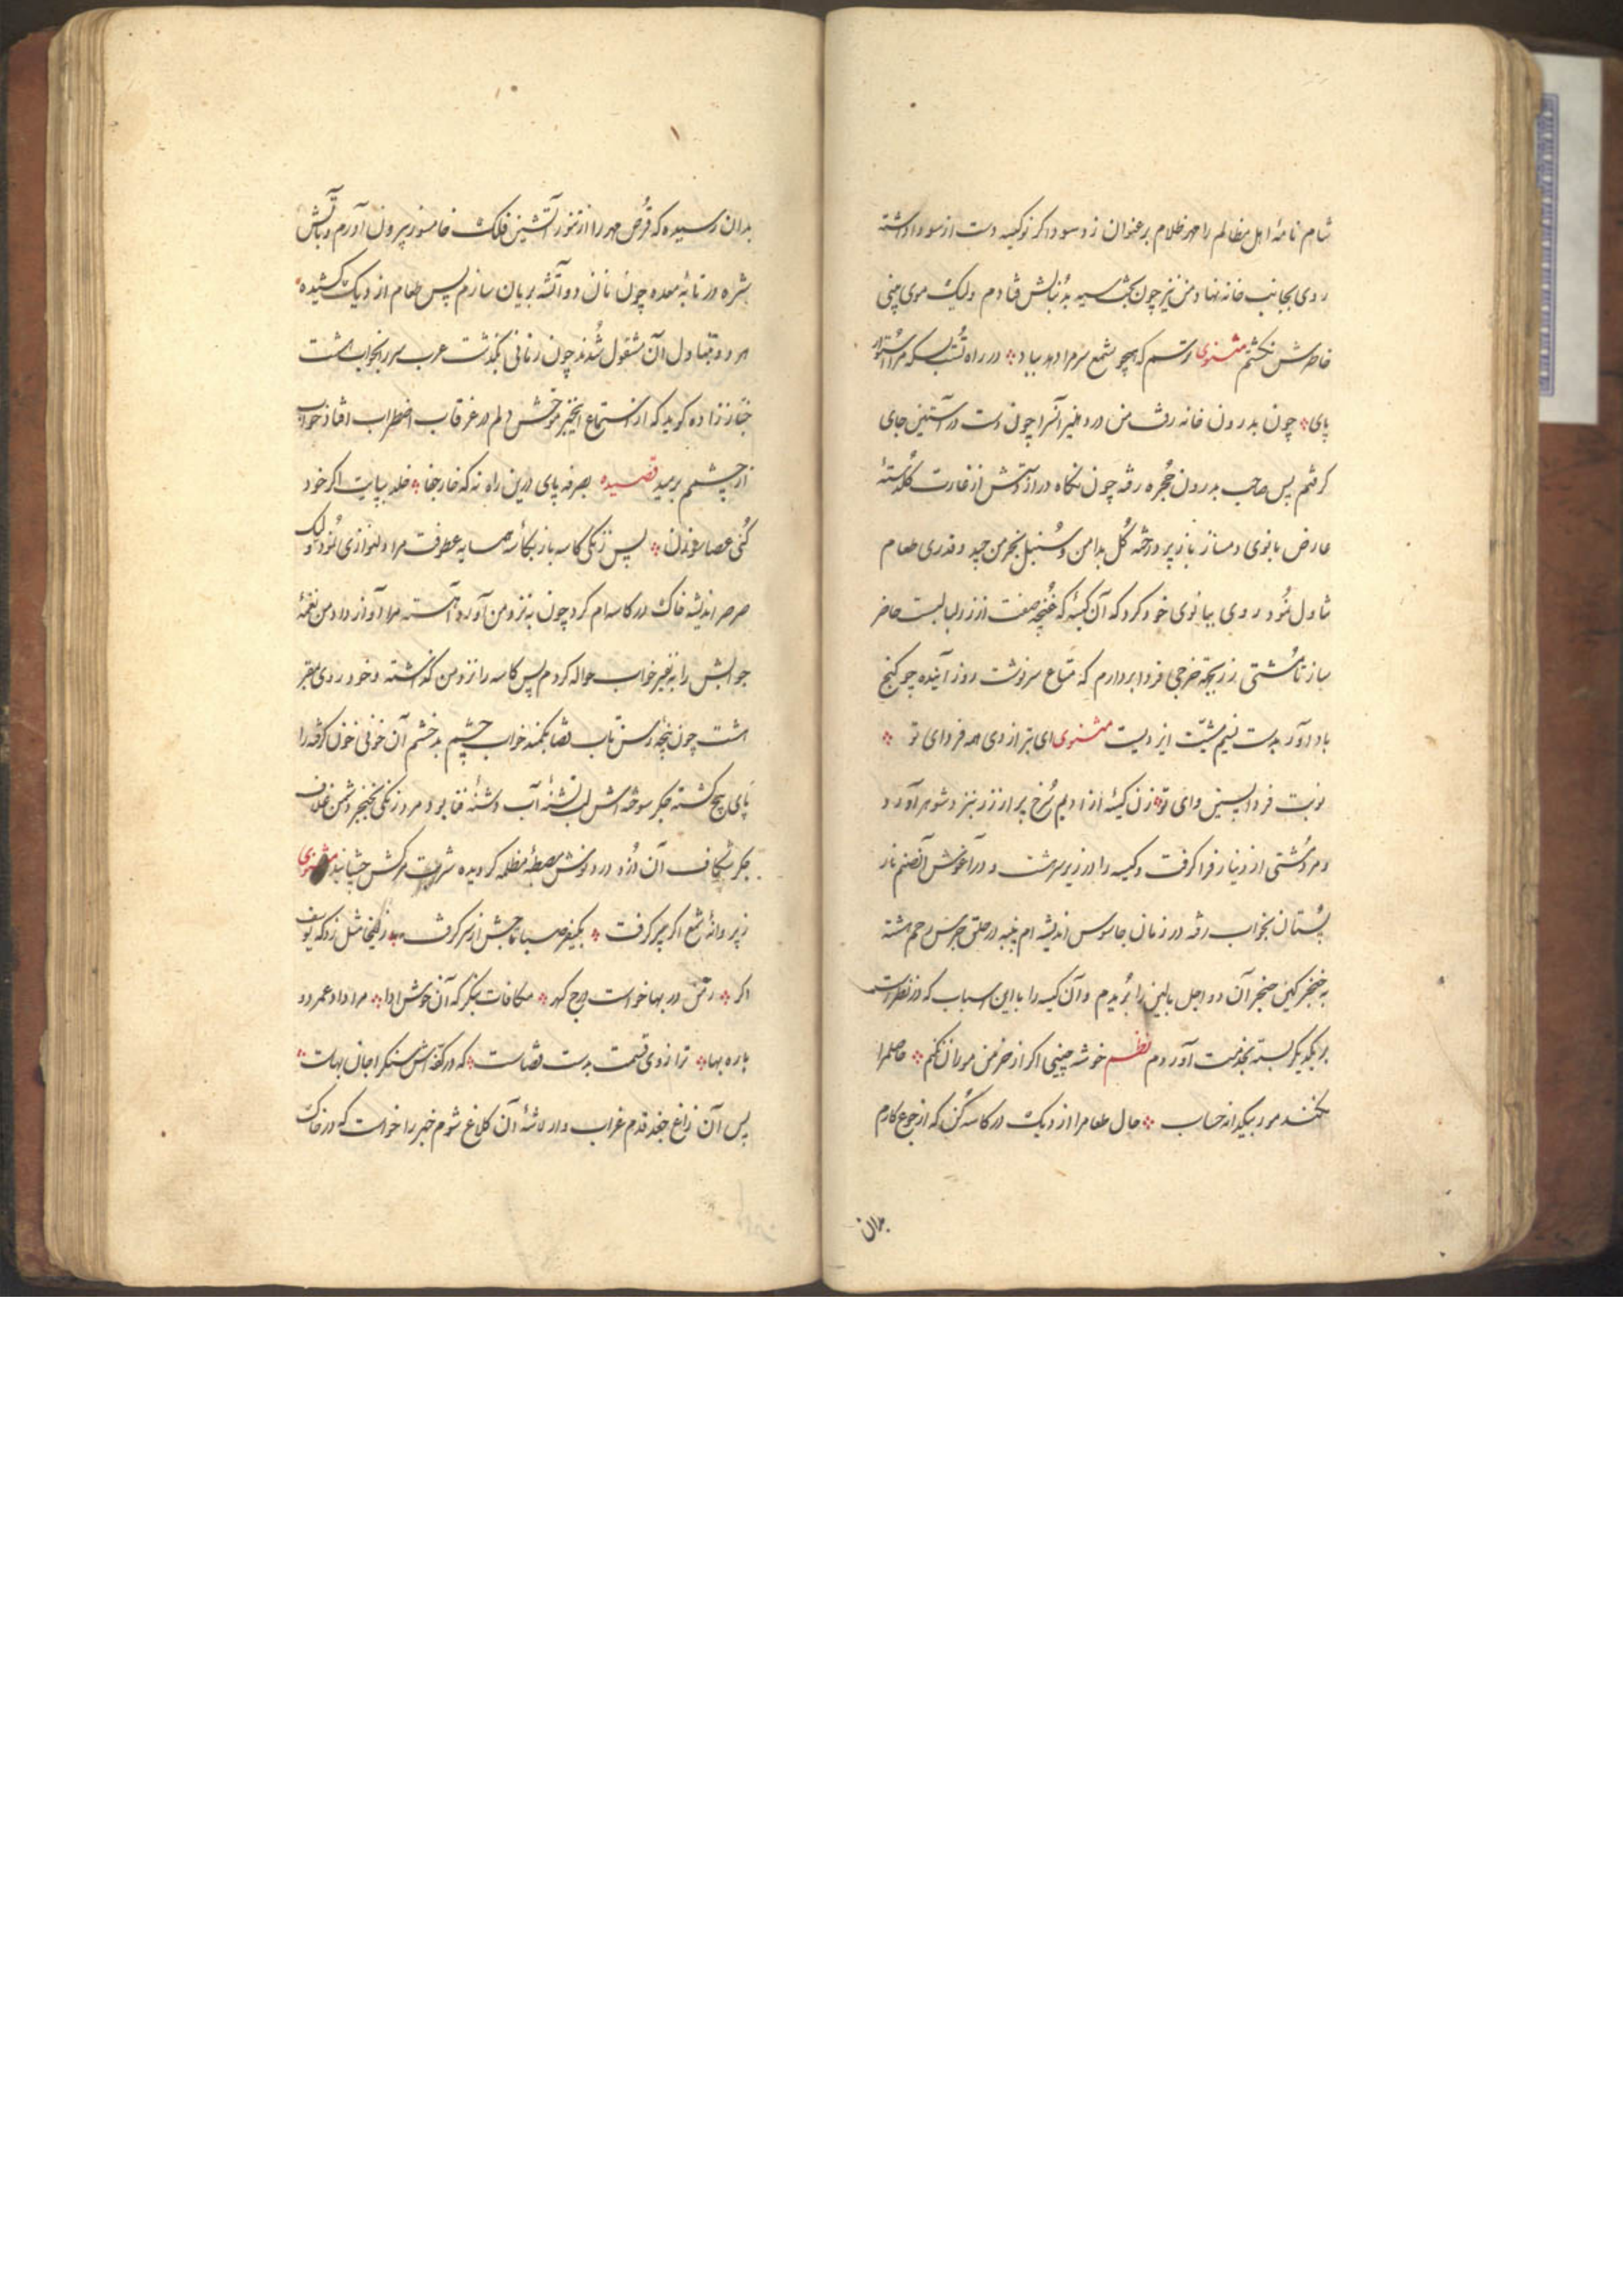 شام نامهٔ اهل مظالم را مهر ظلام بر عنوان زد سوداگر نوکیسه دست از سودا داشته
روی بجانب خانه نهاد و من نیز چون بخت سیه بدنبالش فتادم ولیک موی بینی
خاطرش نکشتم مثنوی ترسم که همچو شمع سرم را دهد بباد در راه تست بسکه مرا استوار
پای چون بدرون خانه رفت من در دهلیز آنسرا چون دست در آستین جای
گرفتم پس صاحب بدرون حجره رفته چون نگاه در از غارت گلدستهٔ
عارض بانوی دمساز باز پرداخته گل بدامن و سنبل بخرمن چید و قدری طعام
تناول نمود روی ببانوی خود کرد که آن کیسه که غنچه صفت از زر لبالبست حاضر
ساز تا مشتی زر بجهة خرجی فردا بردارم که متاع سرنوشت روز آینده چو گنج
باد آور بدست نسیم مشیت ایزدیست مثنوی ای بتر از دی همه فردای تو
نوبت فردا پسین وای تو زن کیسهٔ از ادیم سرخ پر از زر نزد شوهر آورد
و مرد مشتی از دینار فرا گرفت و کیسه را در زیر سر هشت و در آغوش آن صنم نار
پستان بخواب رفته در زمان جاسوس اندیشه ام پنبه در حلق جرس رحم هشته
به خنجر کین حنجر آن دو اجل بالین را بریدم و آن کیسه را با این اسباب که در نظرتست
بر یکدیگر بسته بخدمت آوردم نظم خوشه چینی اگر از خرمن موران نکنم حاصلم را
نکند مور بیکدانه حساب حال طعام را از دیک در کاسه کن که از جوع کارم
بدان
بدان رسیده که قرص مهر را از تنور آتشین فلک خامسوز بیرون آورم و بآتش
شره در تابهٔ معده چون نان دو آتشه بریان سازم پس طعام از دیک کشیده
هر دو بتناول آن مشغول شدند چون زمانی بگذشت عرب سر بخواب هشت
خباز زاده گوید که از استماع اینخبر موحش دلم در غرقاب اضطراب افتاد خواب
از چشمم برمید قصیده بصرفه پای درین راه نه که خار جفا خلد بپایت اگر خود
کنی عصا سوزن پس زنگی کاسه باز بکاسهٔ همسایه عطوفت مرا دلنوازی نمود ولیک
صرصر اندیشه خاک در کاسه ام کرد چون به نزد من آورد آهسته مرا آواز داد من نغمهٔ
جوابش را به نفیر خواب حواله کردم پس کاسه را نزد من گذاشته و خود روی بمقر
هشت چون پنجهٔ رسن تاب قضا بکمند خواب چشم بدخشم آن خونی خون گرفته را
پای پیچ گشته جگر سوخته اش لب تشنهٔ آب دشنهٔ فنا بود مرد زنگی بخنجر دشمن غلاف
جگر شکاف آن دزد دردنوش مصطبهٔ مظلمه گردیده شربت مرگش چشانید مثنوی
ز پروانهٔ شمع اگر پر گرفت بکیفر صبا تاجش از سر گرفت زلیخا مثل زد که یوسف
اگر رختش در بها خواست درج گهر مکافات بنگر که آن خوش ادا مرا داد عمر دو
باره بها ترازوی قسمت بدست قضاست که در کفه اش سنگ را جان بهاست
پس آن زاغ جغد قدم غراب وار لاشهٔ آن کلاغ شوم خبر را خواست که در خاک